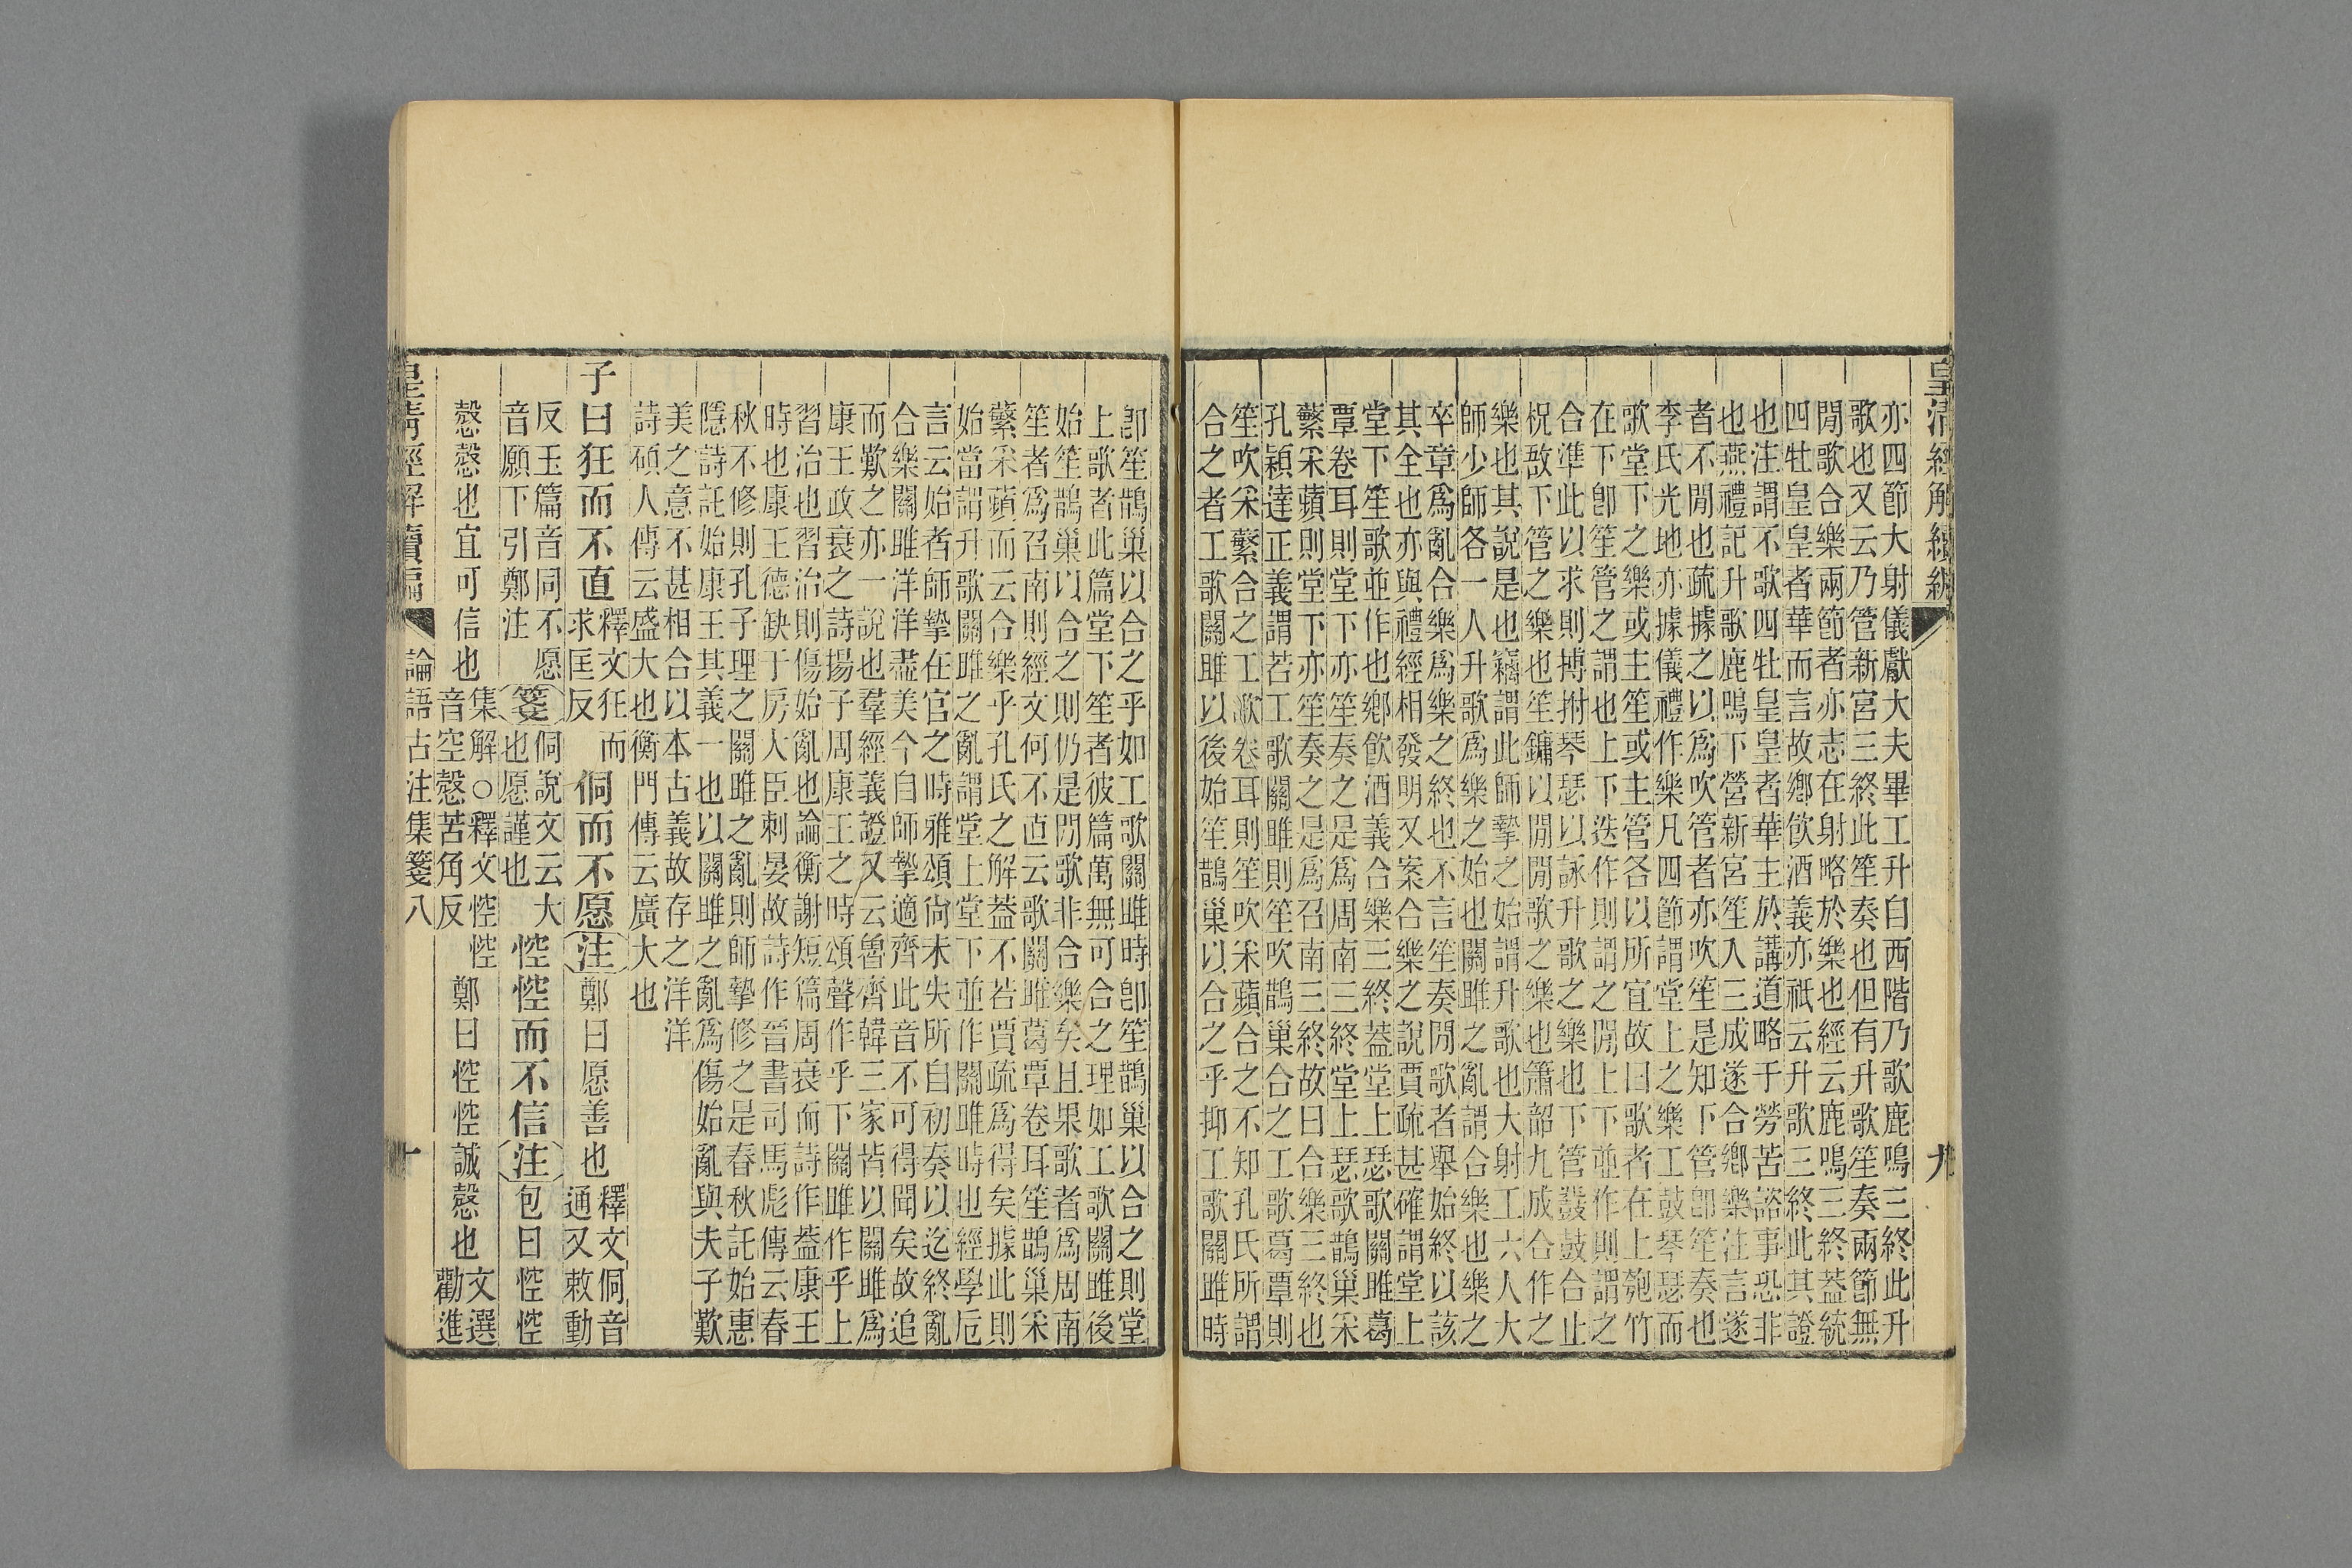 皇清經解續編
九
亦四節大射儀獻大夫畢工升自西階乃歌鹿鳴三終此升
歌也又云乃管新宮三終此笙奏也但有升歌笙奏兩節無
閒歌合樂兩節者亦志在射略於樂也經云鹿鳴三終葢統
四牡皇皇者華而言故鄉飮酒義亦祇云升歌三終此其證
也注謂不歌四牡皇皇者華主於講道略于勞苦諮事恐非
也燕禮記升歌鹿鳴下營新宮笙入三成遂合鄉樂注言遂
者不閒也疏據之以爲吹管者亦吹笙是知下管卽笙奏也
李氏光地亦據儀禮作樂凡四節謂堂上之樂工鼓琴瑟而
歌堂下之樂或主笙或主管各以所宜故曰歌者在上匏竹
在下卽笙管之謂也上下迭作則謂之閒上下並作則謂之
合準此以求則搏拊琴瑟以詠升歌之樂也下管鼗鼓合止
柷敔下管之樂也笙鏞以閒閒歌之樂也簫韶九成合作之
樂也其說是也竊謂此師摯之始謂升歌也大射工六人大
師少師各一人升歌爲樂之始也關雎之亂謂合樂也樂之
卒章爲亂合樂爲樂之終也不言笙奏閒歌者舉始終以該
其全也亦與禮經相發明又案合樂之說賈疏甚確謂堂上
堂下笙歌並作也鄉飮酒義合樂三終葢堂上瑟歌關雎葛
覃卷耳則堂下亦笙奏之是爲周南三終堂上瑟歌鵲巢采
蘩采蘋則堂下亦笙奏之是爲召南三終故曰合樂三終也
孔穎達正義謂若工歌關雎則笙吹鵲巢合之工歌葛覃則
笙吹采蘩合之工歌卷耳則笙吹采蘋合之不知孔氏所謂
合之者工歌關雎以後始笙鵲巢以合之乎抑工歌關雎時
卽笙鵲巢以合之乎如工歌關雎時卽笙鵲巢以合之則堂
上歌者此篇堂下笙者彼篇萬無可合之理如工歌關雎後
始笙鵲巢以合之則仍是閒歌非合樂矣且果歌者爲周南
笙者爲召南則經文何不直云歌關雎葛覃卷耳笙鵲巢采
蘩采蘋而云合樂乎孔氏之解葢不若賈疏爲得矣據此則
始當謂升歌關雎之亂謂堂上堂下並作關雎時也經學卮
言云始者師摯在官之時雅頌尙未失所自初奏以迄終亂
合樂關雎洋洋盡美今自師摯適齊此音不可得聞矣故追
而歎之亦一說也羣經義證又云魯齊韓三家皆以關雎爲
康王政衰之詩揚子周康王之時頌聲作乎下關雎作乎上
習治也習治則傷始亂也論衡謝短篇周衰而詩作葢康王
時也康王德缺于房大臣刺晏故詩作晉書司馬彪傳云春
秋不修則孔子理之關雎之亂則師摯修之是春秋託始惠
隱詩託始康王其義一也以關雎之亂爲傷始亂與夫子歎
美之意不甚相合以本古義故存之洋洋
詩碩人傳云盛大也衡門傳云廣大也
子曰狂而不直釋文狂而求匡反侗而不愿注鄭曰愿善也釋文侗音通又敕動
反玉篇音同不愿音願下引鄭注箋侗說文云大也愿謹也悾悾而不信注包曰悾悾
慤慤也宜可信也集解○釋文悾悾音空慤苦角反鄭曰悾悾誠慤也文選勸進
皇淸經解續編
論語古注集箋八
十